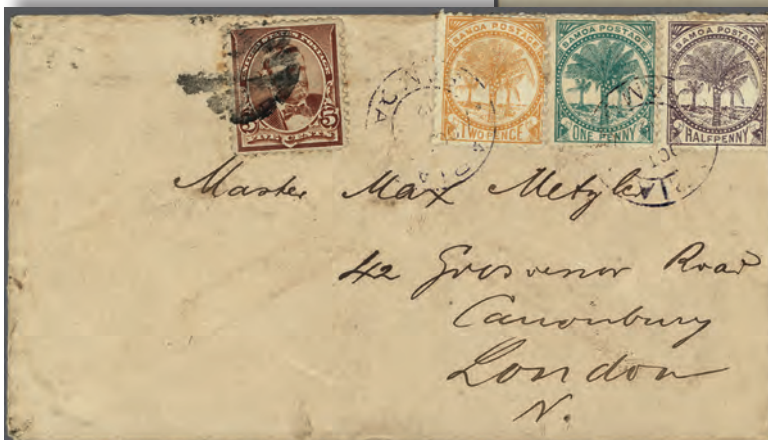 STATES POSTAGE
5 CENTS 5
SAMOA POSTAGE
TWO PENCE
SAMOA POSTAGE
ONE PENNY
SAMOA POSTAGE
HALFPENNY
APIA
OCT
Master Max Metzler
42 Grosvenor Road
Canonbury
London
N.